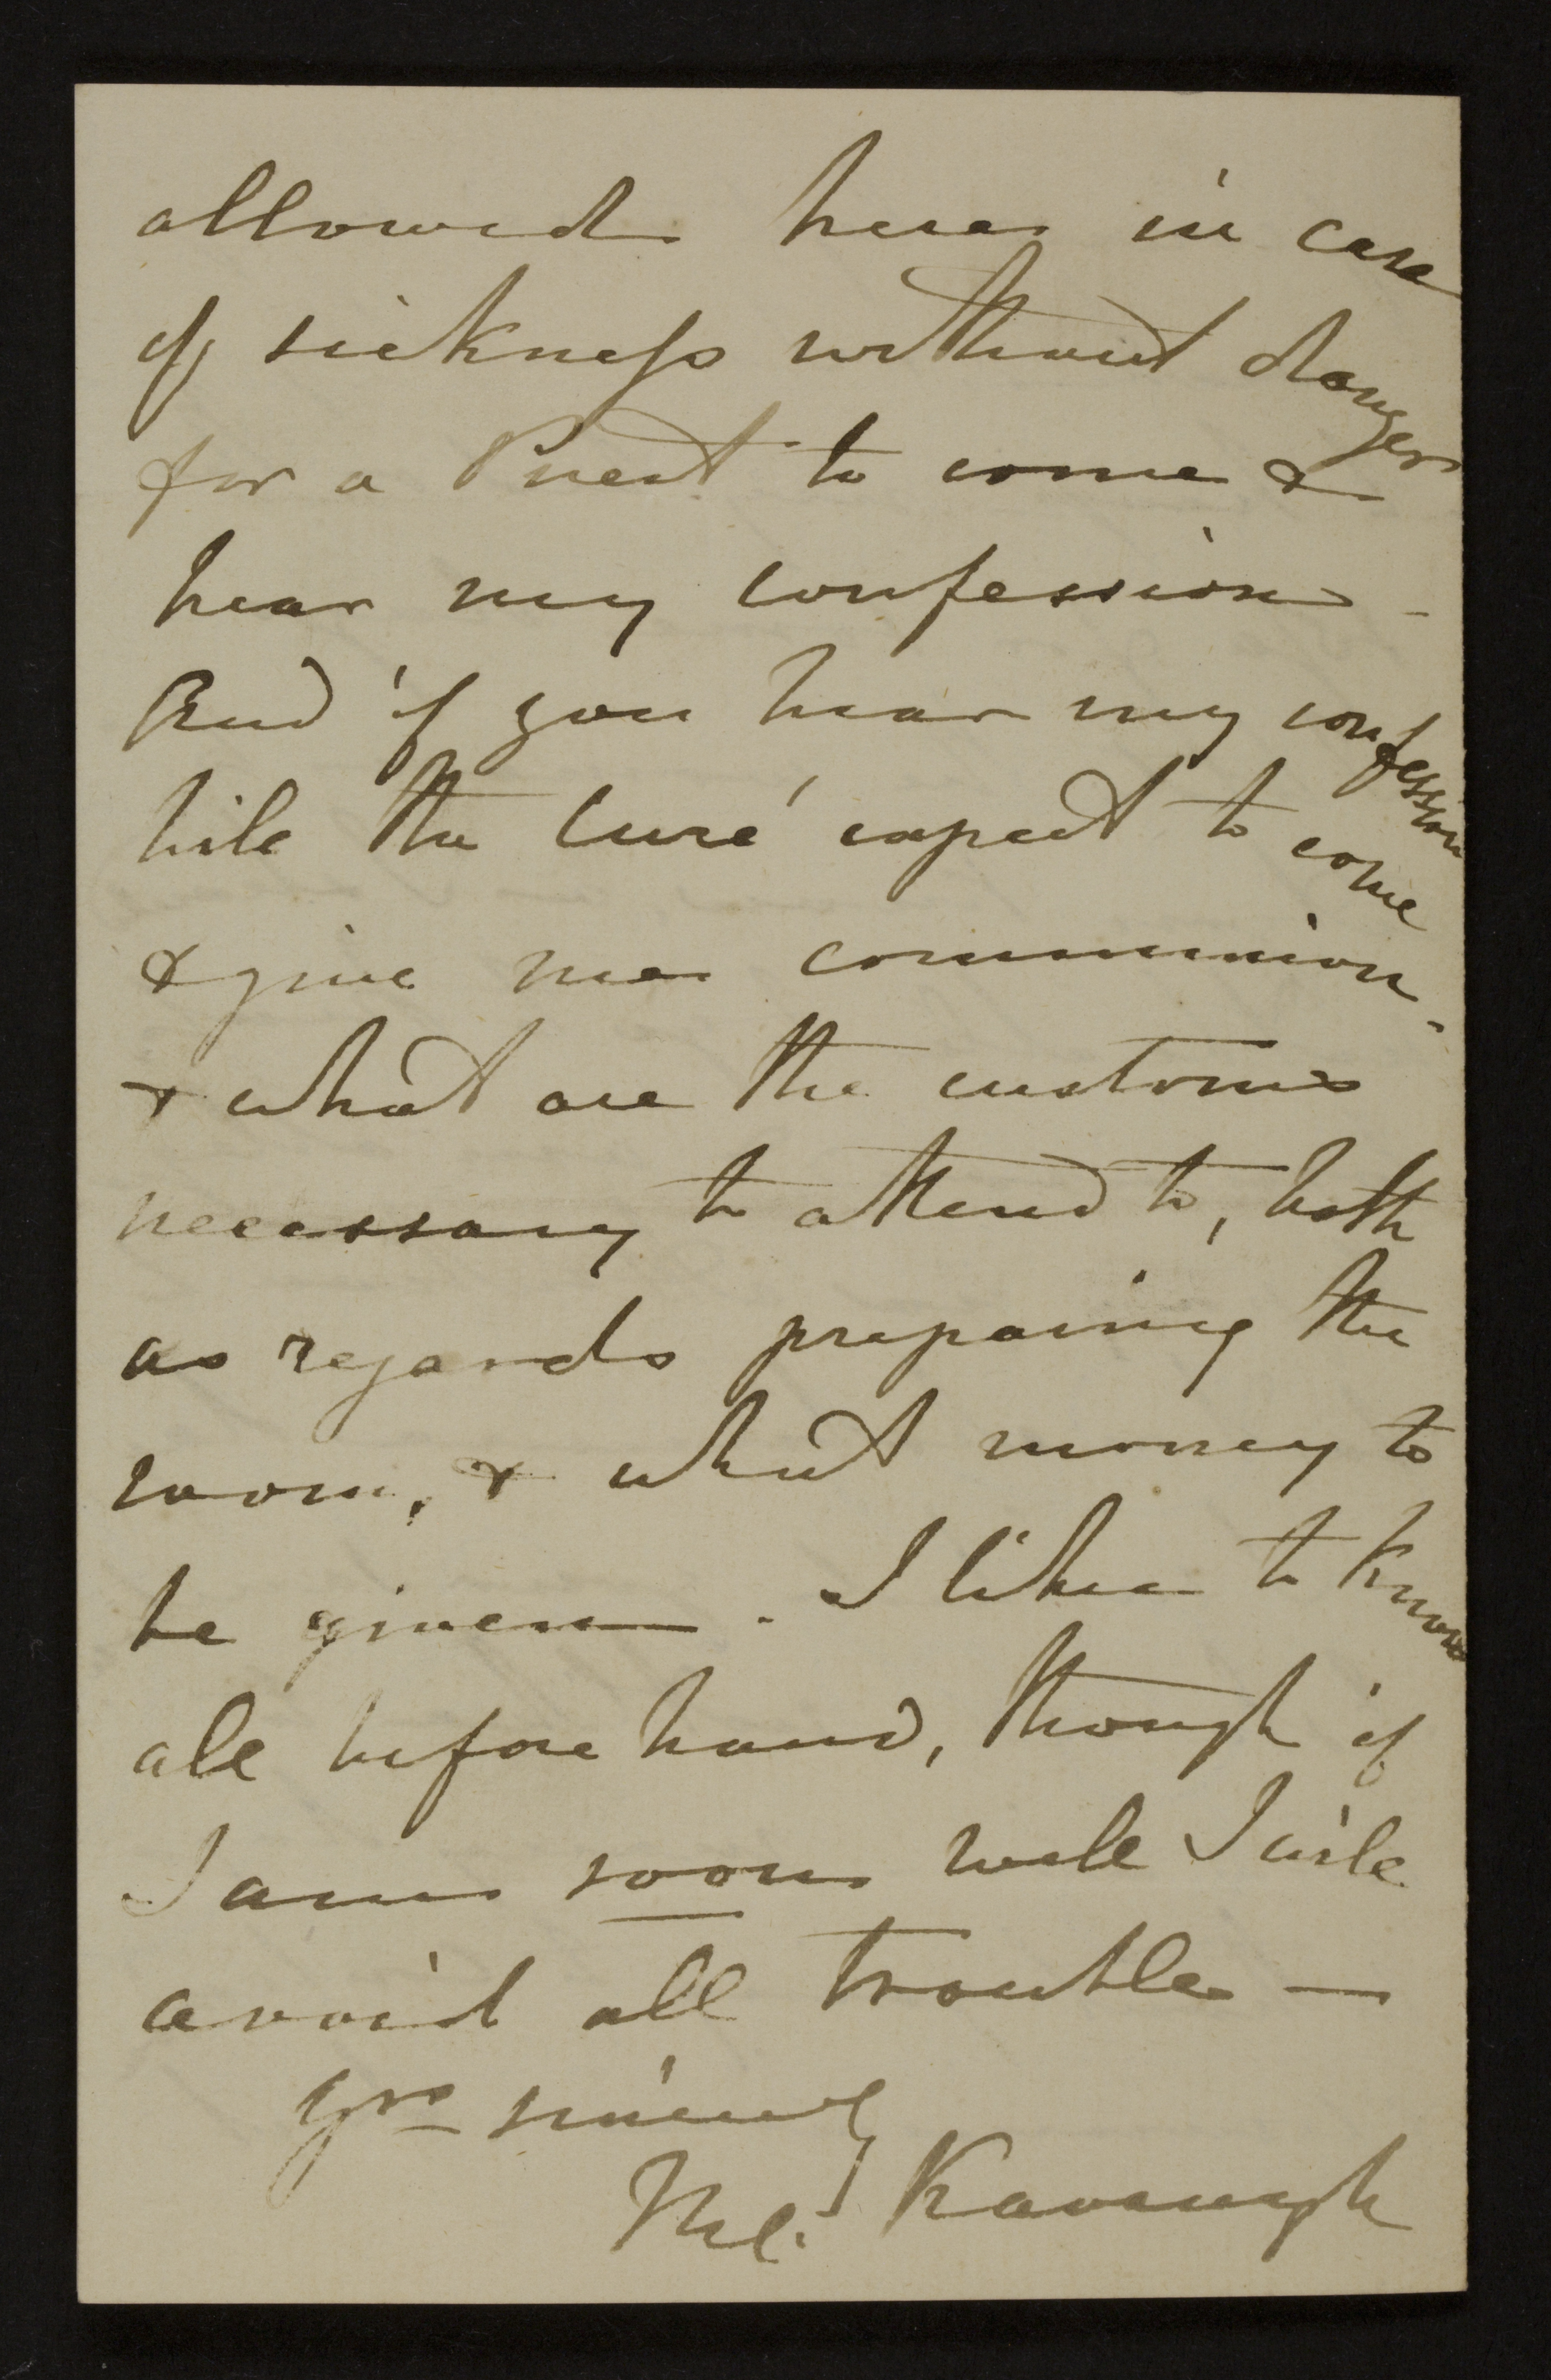 allowed here in case
of sickness without danger
for a Priest to come &
hear my confession -
And if you hear my confession
will the Curé expect to come
& give me communion -
& what are the customs
necessary to attend to, both
as regards preparing the
room, & what money to
be given - I like to know
all before hand, though if
I am soon well I will
avoid all trouble —
Yrs sincerely
Kavanagh